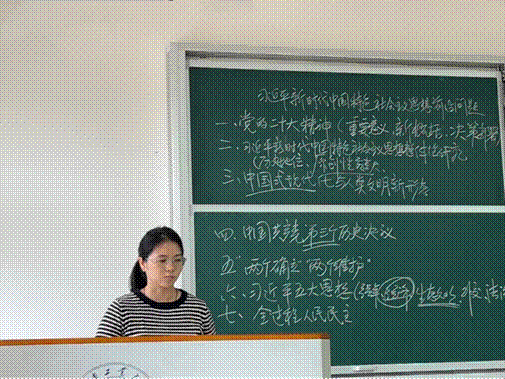 习近平新时代中国特色社会主义思想前沿问题
一、党的二十大精神(重要意义、新概括、决策部署
二、习近平新时代中国特色社会主义思想
(历史地位、原创性贡献)
三、中国式现代化与人类文明新形态
四、中国共产党第三个历史决议
五"两个确立""两个维护"
六、习近平五大思想(强军 经济 生态文明 外交 法治
七、全过程人民民主